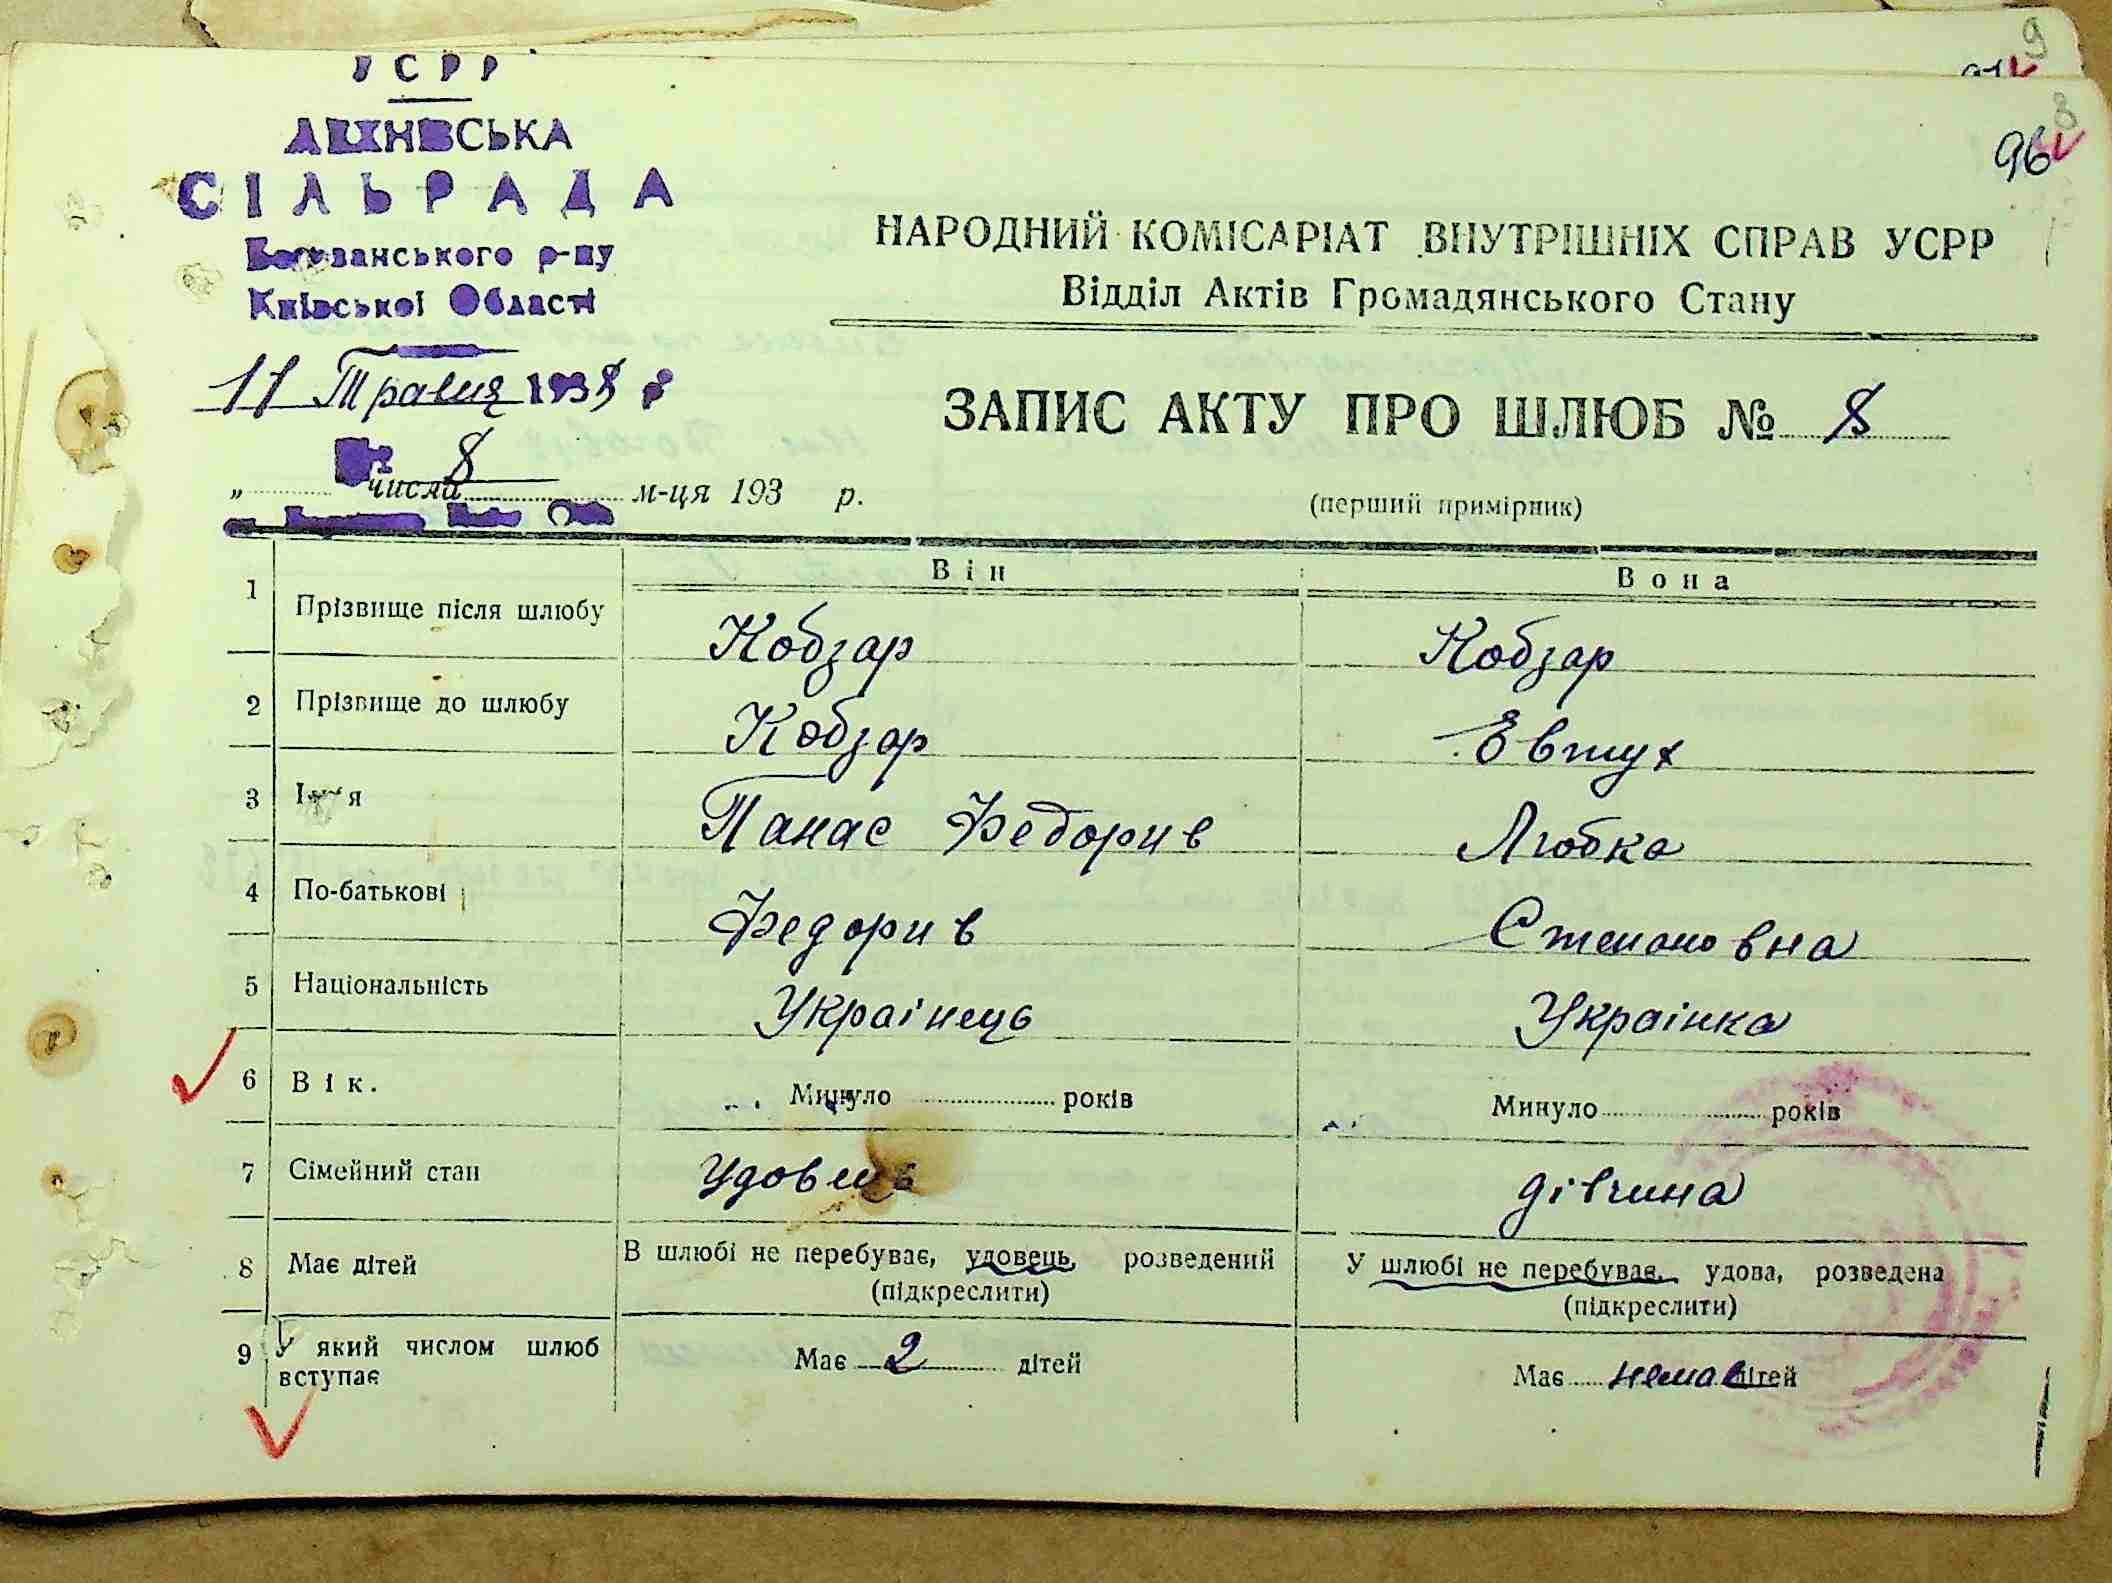 9
96
8
УСРР
СІЛЬРАДА
р-ну
Київської Області
11 Травня 1938 р
8
„ числа м-ця 193 р.
НАРОДНИЙ КОМІСАРІАТ ВНУТРІШНІХ СПРАВ УСРР
Відділ Актів Громадянського Стану
ЗАПИС АКТУ ПРО ШЛЮБ № 8
(перший примірник)
Він Вона
1 Прізвище після шлюбу Кобзар Кобзар
2 Прізвище до шлюбу Кобзар Евтух
3 Ім'я Панас Федорив Любка
4 По-батькові Федорив Степановна
5 Національність Украінець Украінка
6 Вік. Минуло років Минуло років
7 Сімейний стан Удовець дівчина
8 Має дітей В шлюбі не перебуває, удовець, розведений У шлюбі не перебуває, удова, розведена
(підкреслити) (підкреслити)
9 У який числом шлюб Має 2 дітей Має немає дітей
вступає